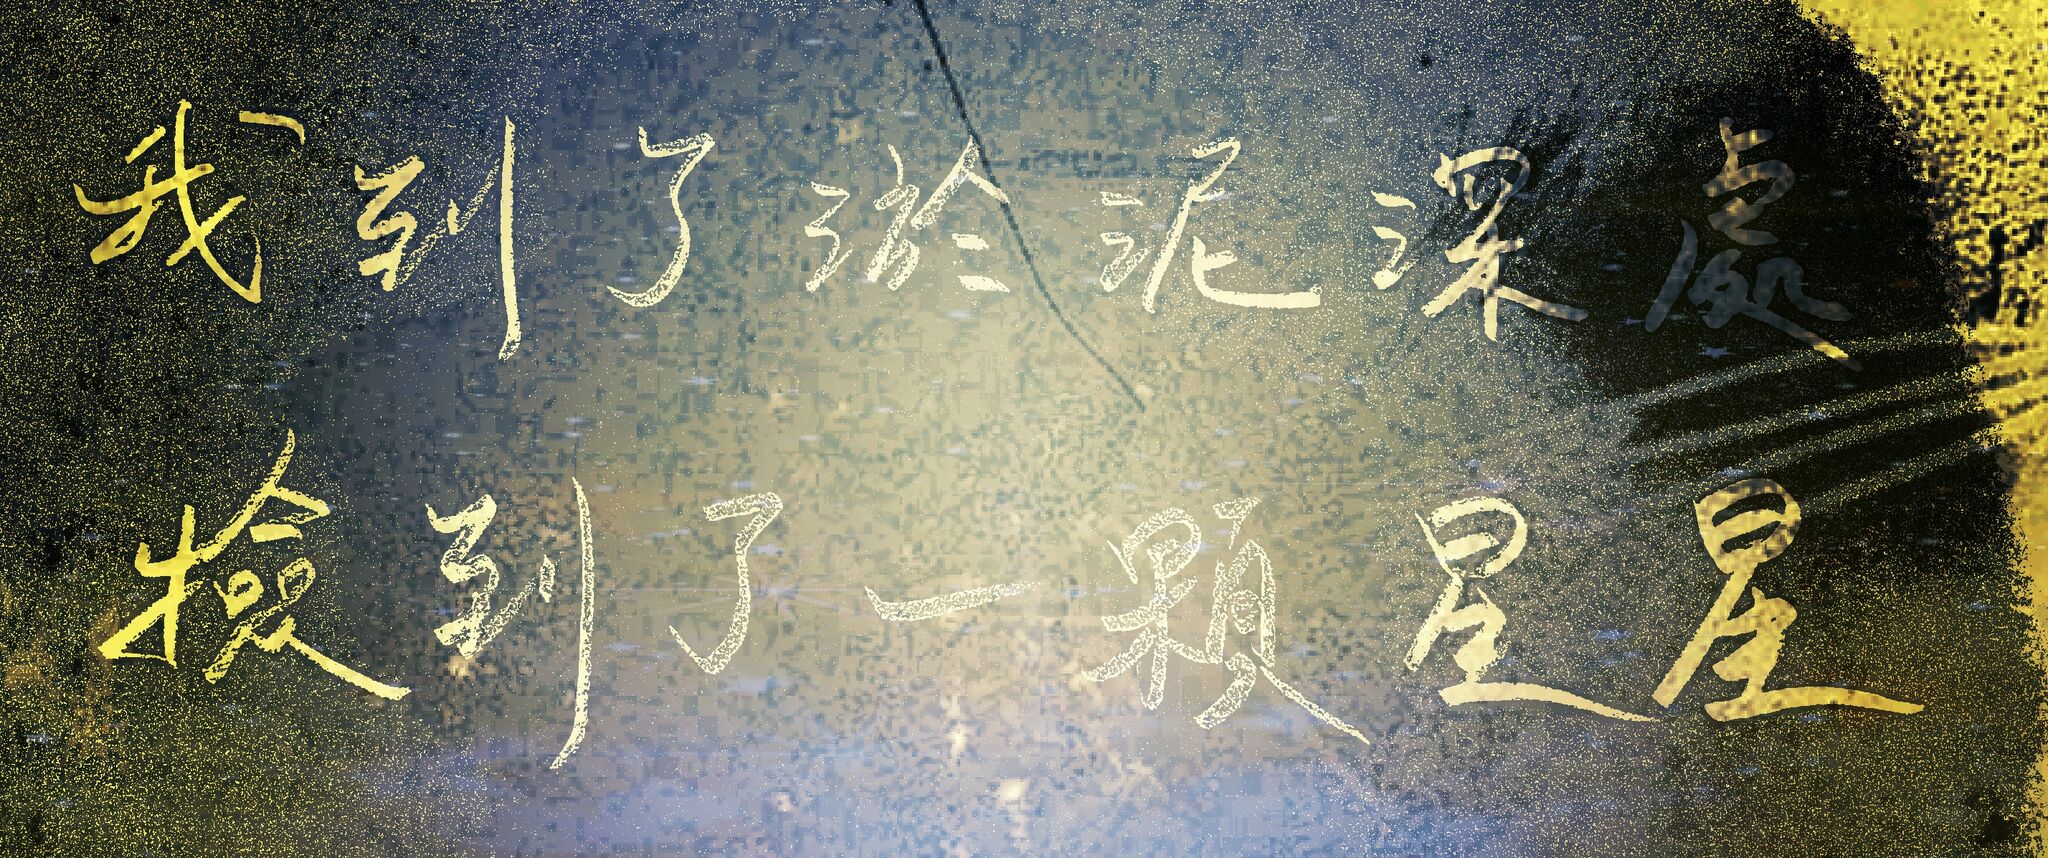 我到了淤泥深處
撿到了一顆星星